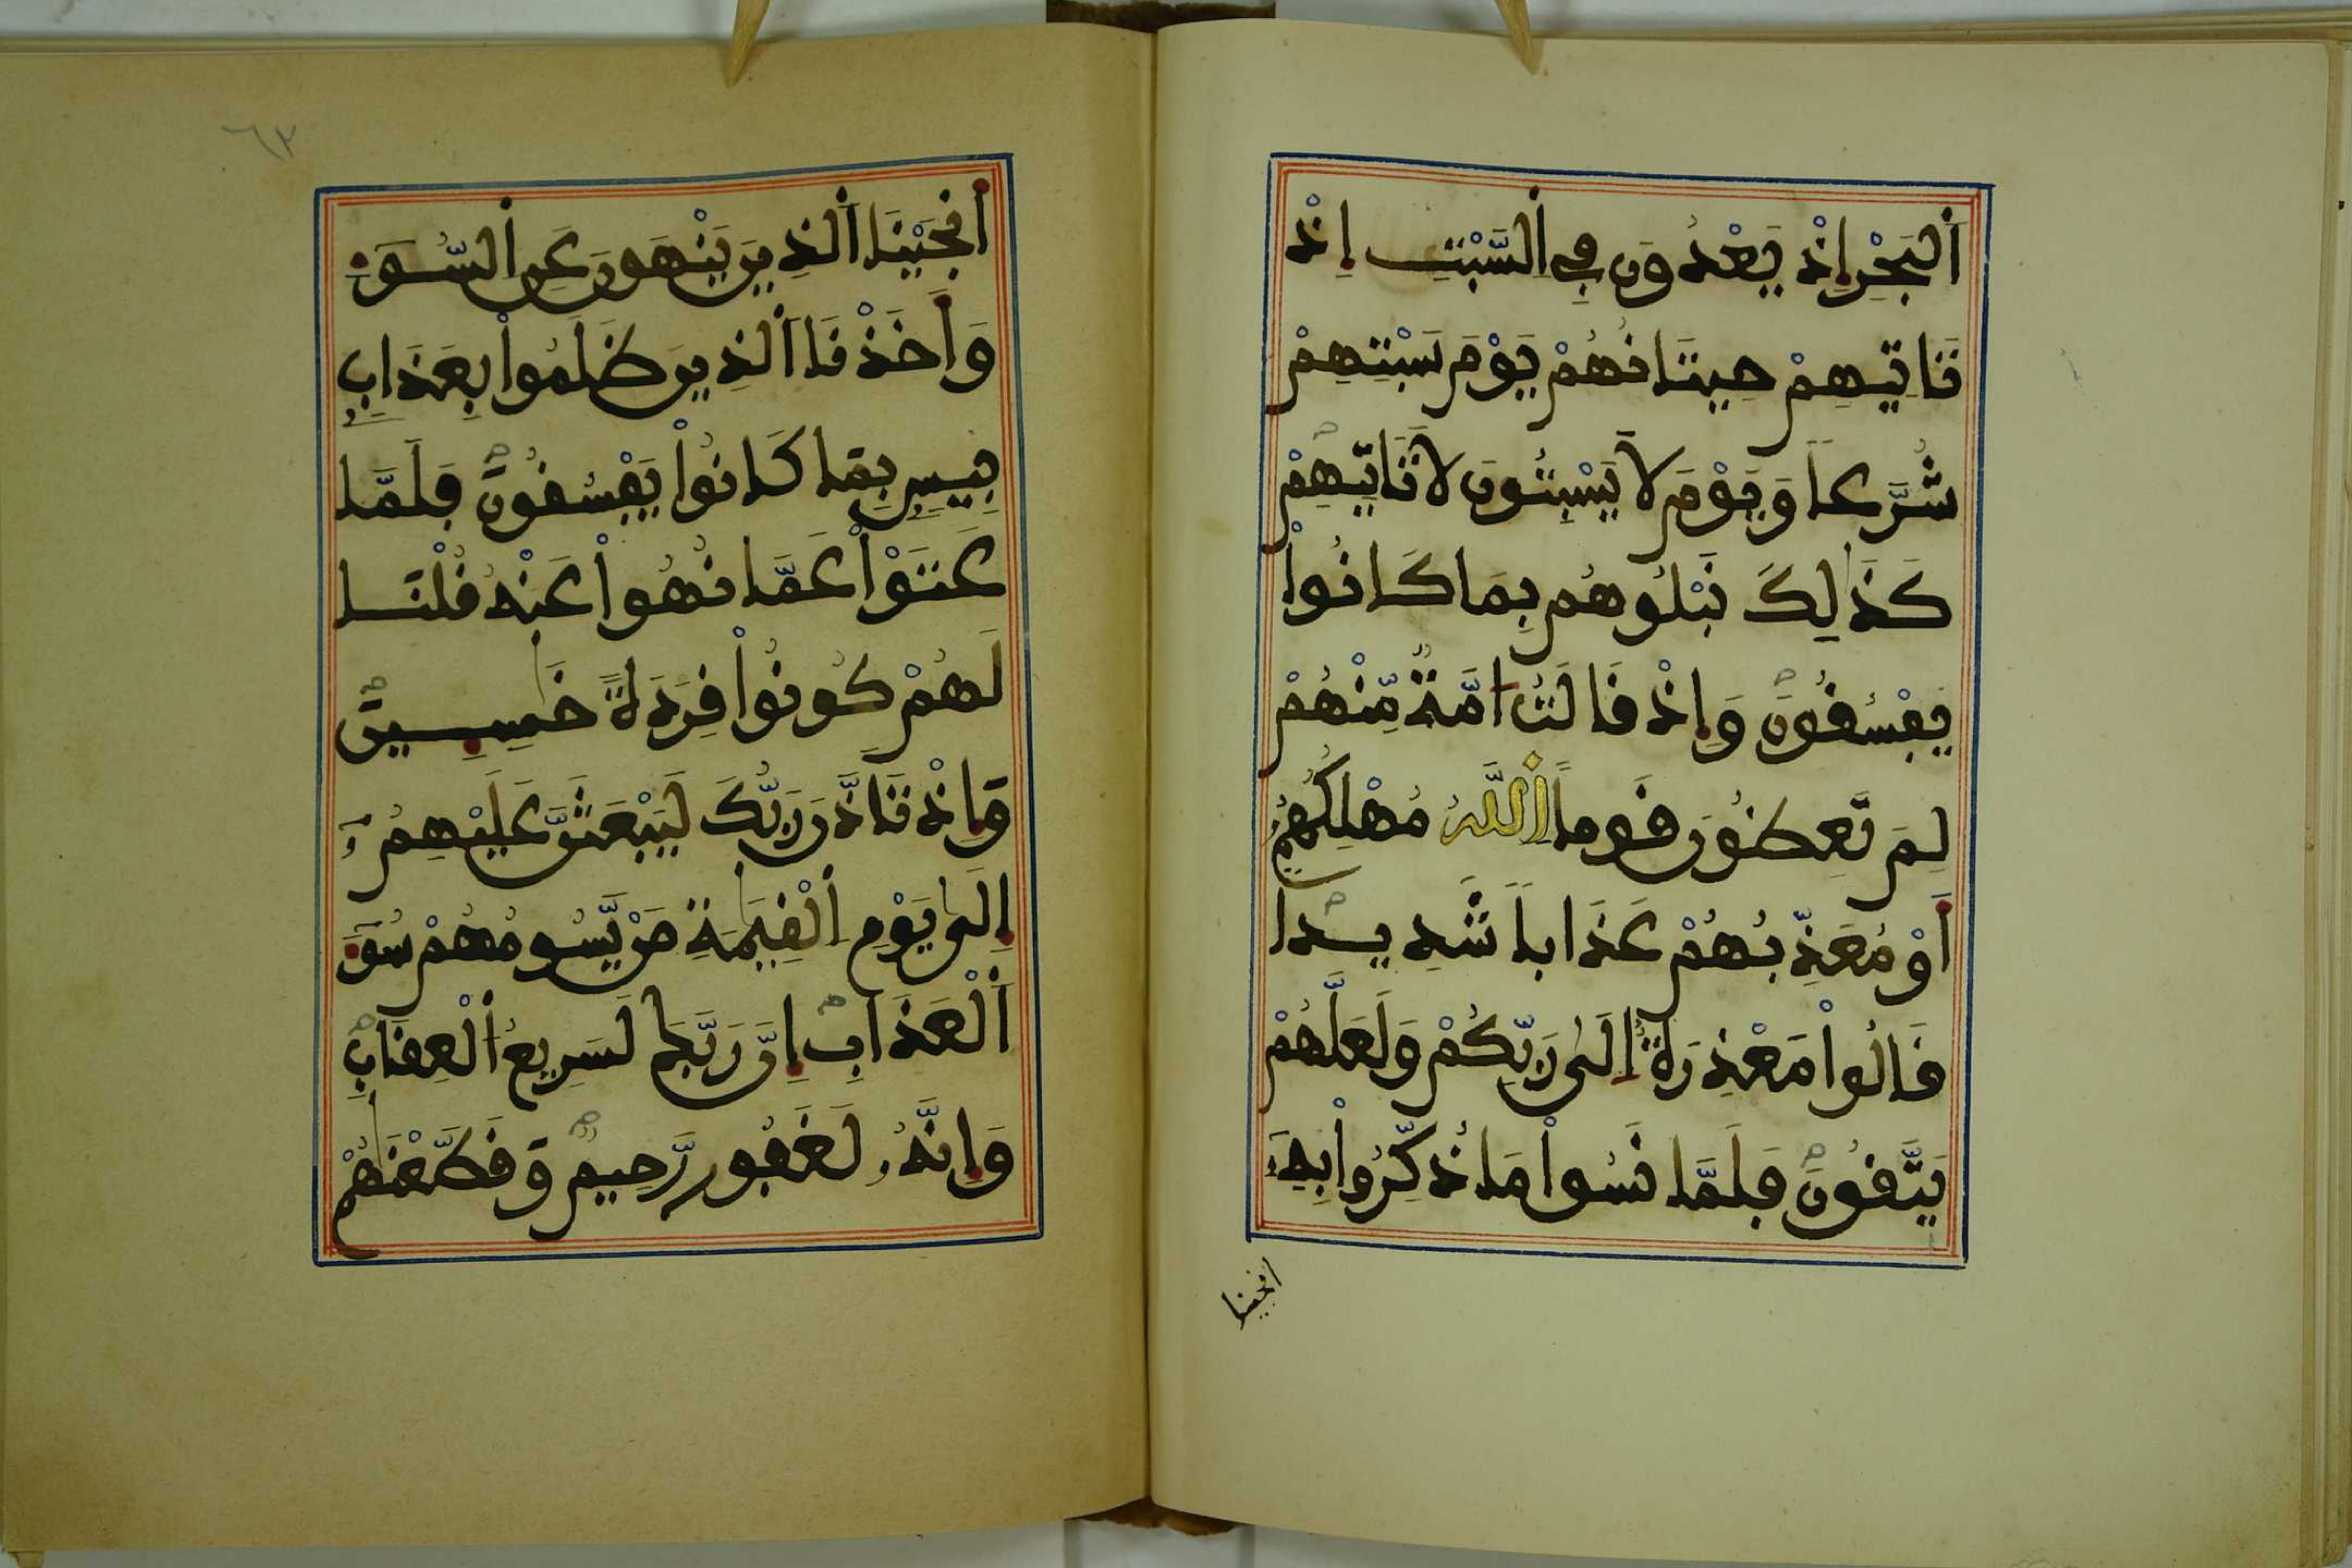 اَ۬لْبَحْرِ إِذْ يَعْدُونَ فِے اِ۬لسَّبْتِ إِذْ
تَاتِيهِمْ حِيتَانُهُمْ يَوْمَ سَبْتِهِمْ
شُرَّعاً وَيَوْمَ لَا يَسْبِتُونَ لَا تَاتِيهِمْ
كَذَٰلِكَ نَبْلُوهُم بِمَا كَانُواْ
يَفْسُقُونَ وَإِذْ قَالَتُ امَّةٌ مِّنْهُمْ
لِمَ تَعِظُونَ قَوْماً اَ۬للَّهُ مُهْلِكُهُمُۥٓ
أَوْ مُعَذِّبُهُمْ عَذَاباً شَدِيداً
قَالُواْ مَعْذِرَةٌ اِلَىٰ رَبِّكُمْ وَلَعَلَّهُمْ
يَتَّقُونَ فَلَمَّا نَسُواْ مَا ذُكِّرُواْ بِهِۦٓ
انجينا
٦٣
أَنجَيْنَا اَ۬لذِينَ يَنْهَوْنَ عَنِ اِ۬لسُّوٓءِ
وَأَخَذْنَا اَ۬لذِينَ ظَلَمُواْ بِعَذَابِۢ
بِيسِۢ بِمَا كَانُواْ يَفْسُقُونَ فَلَمَّا
عَتَوْاْ عَن مَّا نُهُواْ عَنْهُ قُلْنَا
لَهُمْ كُونُواْ قِرَدَةً خَٰسِـِٕينَ
وَإِذْ تَأَذَّنَ رَبُّكَ لَيَبْعَثَنَّ عَلَيْهِمُۥٓ
إِلَىٰ يَوْمِ اِ۬لْقِيَٰمَةِ مَنْ يَّسُومُهُمْ سُوٓءَ
اَ۬لْعَذَابِ إِنَّ رَبَّكَ لَسَرِيعُ اُ۬لْعِقَابِ
وَإِنَّهُۥ لَغَفُورٌ رَّحِيمٌ وَقَطَّعْنَٰهُمْ